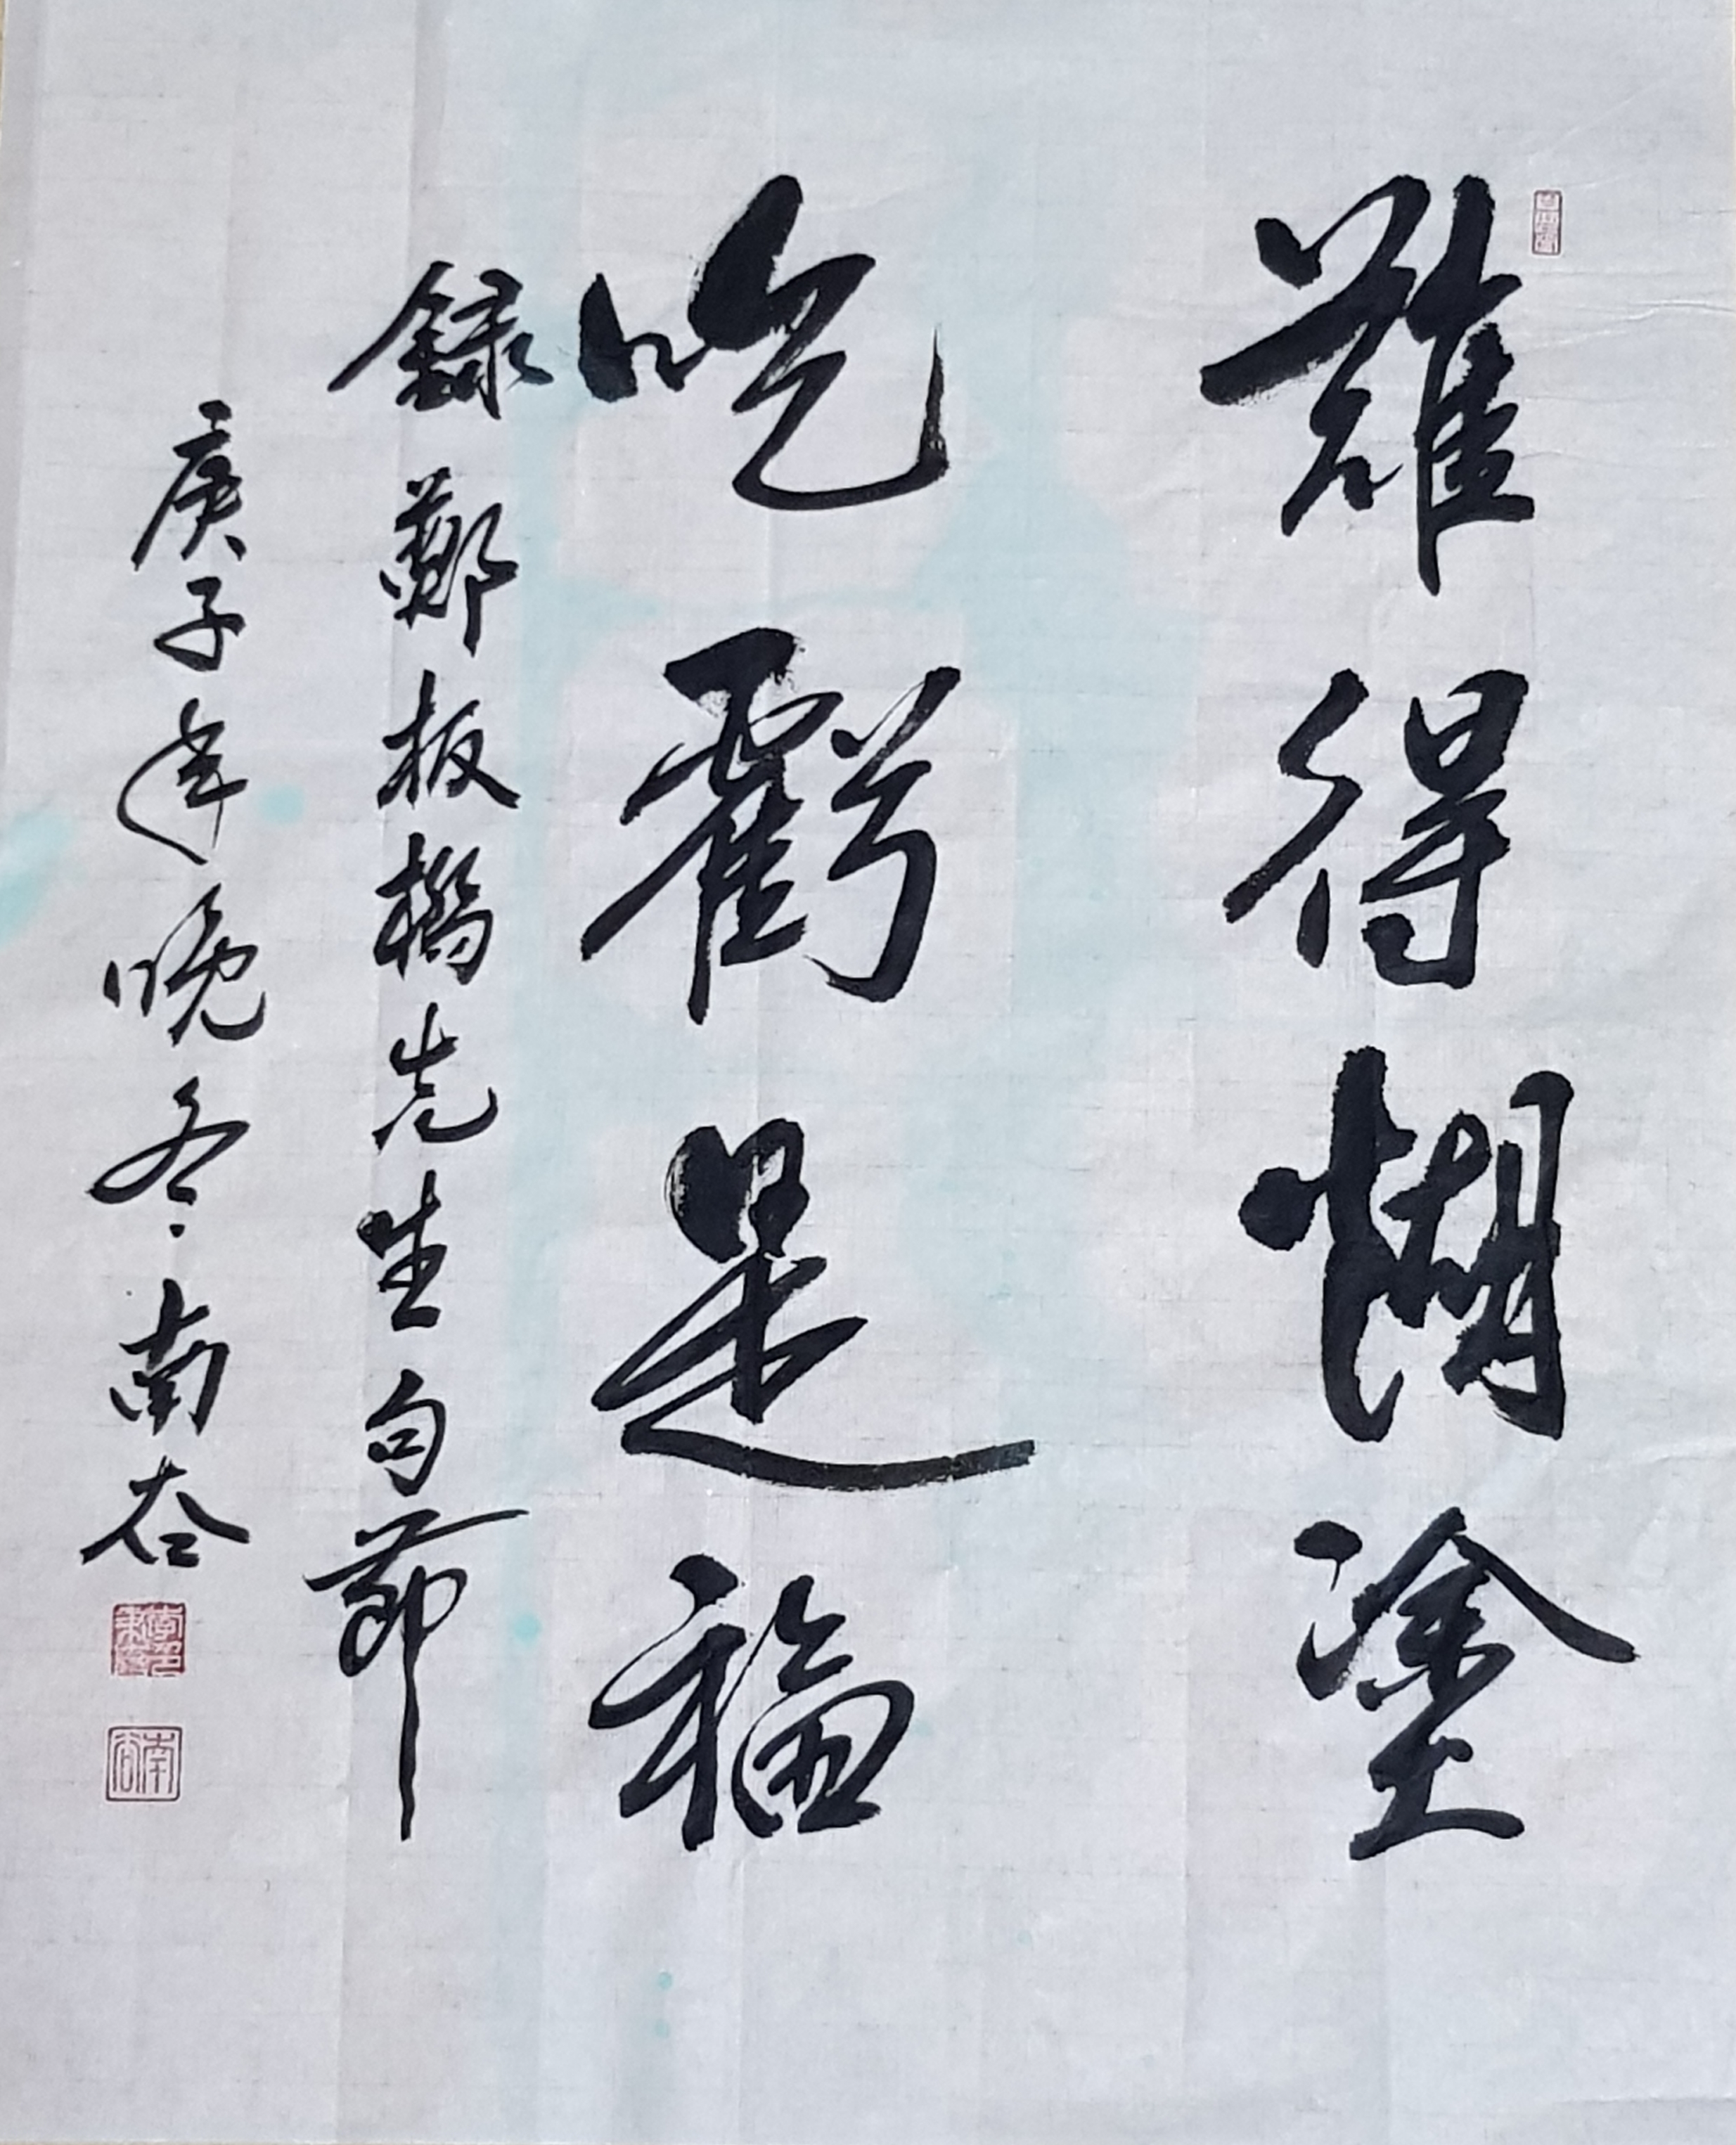 難得糊塗
吃虧是福
録鄭板橋先生句節
庚子年晚冬南谷
南谷